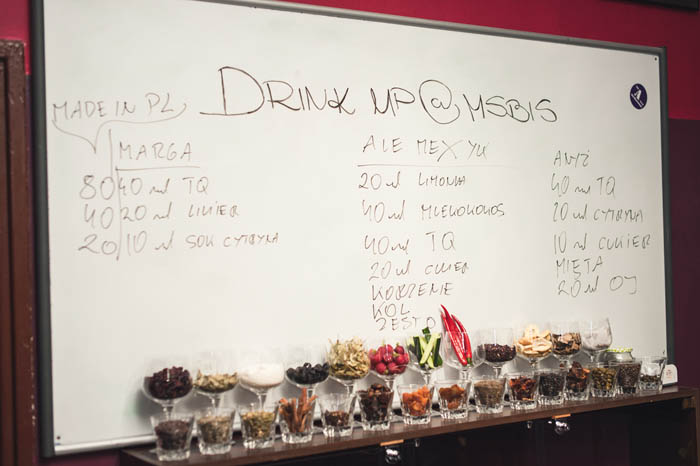 DRINK MP@MSBIS
MADE IN PL
MARGA
80 40 ml TQ
40 20 ml LIKIER
20 10 ml SOK CYTRYNA
ALE MEXYK
20 ml LIMONKA
40 ml MLEKOKOKOS
40 ml TQ
20 ml CUKIER
KORZENIE
KOL
ZESTO
ANYŻ
40 ml TQ
20 ml CYTRYNA
10 ml CUKIER
MIĘTA
20 ml OJ